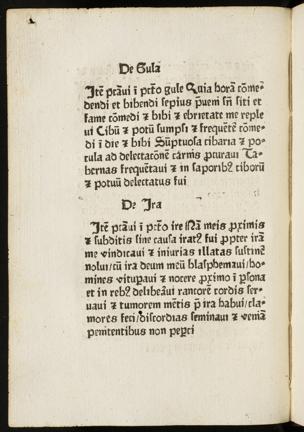 De Gula
Itē pctāui ī pctō gule Quia horā cōme⸗
dendi et bibendi sepius p̄ueni sñ siti et
fame cōmedi ⁊ bibi ⁊ ebrietate me reple
ui Cibū ⁊ potū sumpsi ⁊ frequētē cōme⸗
di ī die ⁊ bibi Sūptuosa cibaria ⁊ po⸗
cula ad delectacōnē carnis ꝓcuraui Ta⸗
bernas frequētaui ⁊ in saporibꝰ ciborū
⁊ potuū delectatus fui
De Ira
Itē pctāui ī pctō ire Nā meis ꝓximis
⁊ subditis sine causa iratꝰ fui ꝓpter irā
me vindicaui ⁊ iniurias illatas sustinē
nolui/cū ira deum meū blasphemaui/ho⸗
mines vitupaui ⁊ nocere ꝓximo ī ꝑsona
et in rebꝰ deliberaui rancorē cordis ser⸗
uaui ⁊ tumorem mētis p̄ ira habui/cla⸗
mores feci/discordias seminaui ⁊ veniā
penitentibus non peꝑci